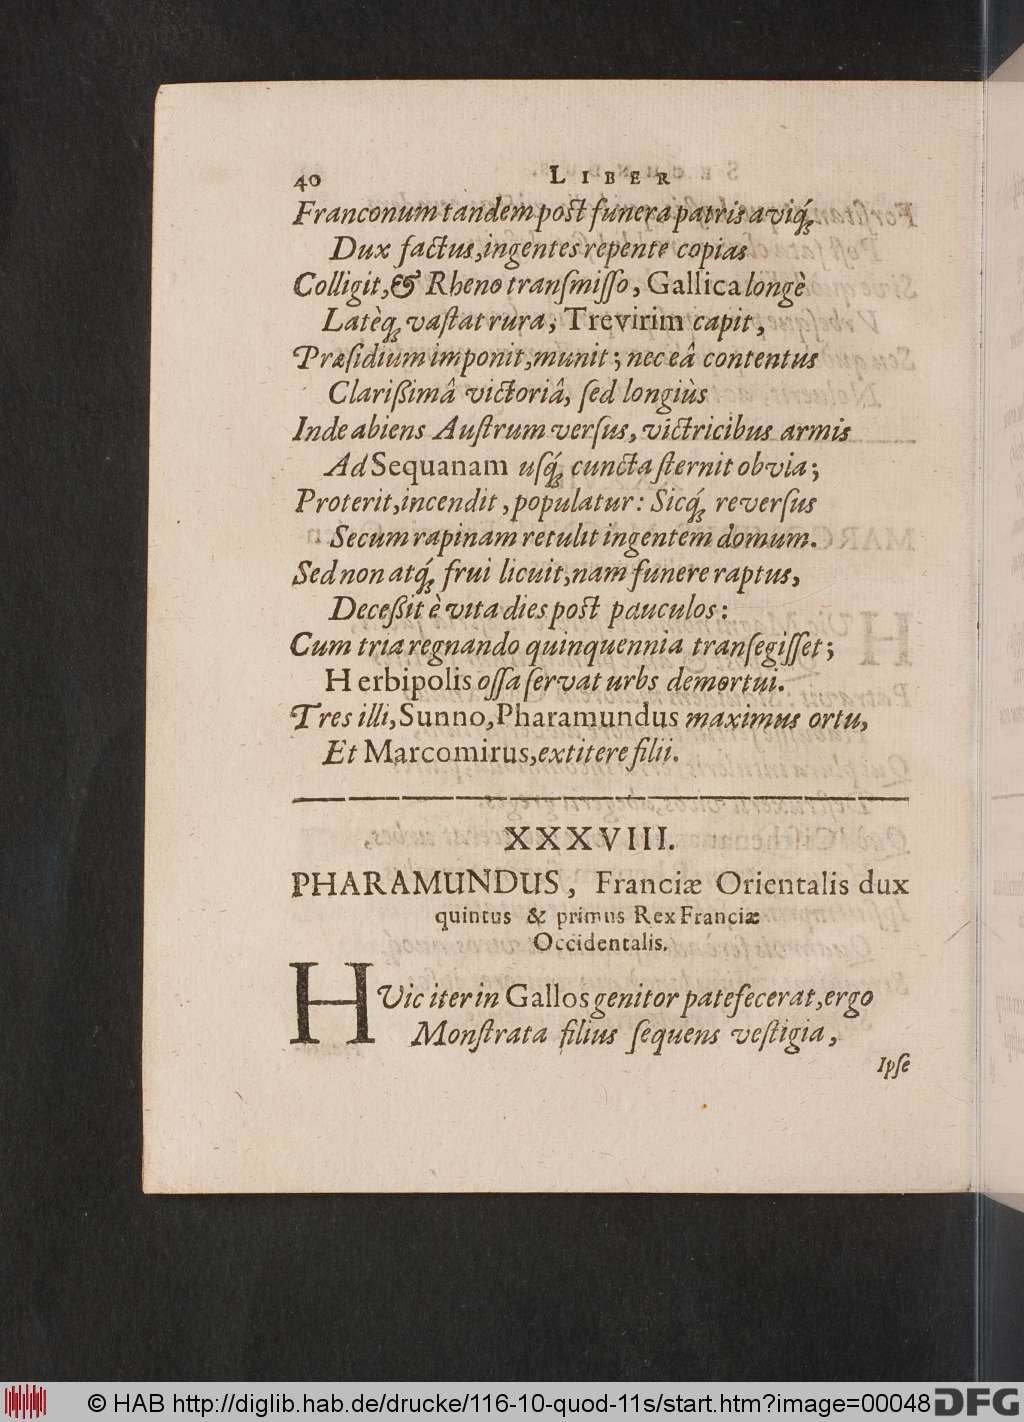 40 LIBER
Franconum tandem post funera patris aviq́ꝫ
Dux factus, ingentes repente copias
Colligit, & Rheno transmiſſo, Gallica longè
Latèqꝫ vaſtat rura, Trevirim capit,
Præſidium imponit, munit; nec eâ contentus
Clarißimâ victoriâ, ſed longiùs
Inde abiens Auſtrum verſus, victricibus armis
Ad Sequanam uſq́ꝫ cuncta ſternit obvia;
Proterit, incendit, populatur: Sicq́ꝫ reverſus
Secum rapinam retulit ingentem domum.
Sed non atq́ꝫ frui licuit, nam funere raptus,
Deceßit è vita dies post pauculos:
Cum tria regnando quinquennia tranſegiſſet;
Herbipolis oſſa ſervat urbs demortui.
Tres illi, Sunno, Pharamundus maximus ortu,
Et Marcomirus, extitere filii.
XXXVIII.
PHARAMUNDUS, Franciæ Orientalis dux
quintus & primus Rex Franciæ
Occidentalis.
HVic iter in Gallos genitor patefecerat, ergo
Monſtrata filius ſequens veſtigia,
Ipſe
© HAB http://diglib.hab.de/drucke/116-10-quod-11s/start.htm?image=00048 DFG